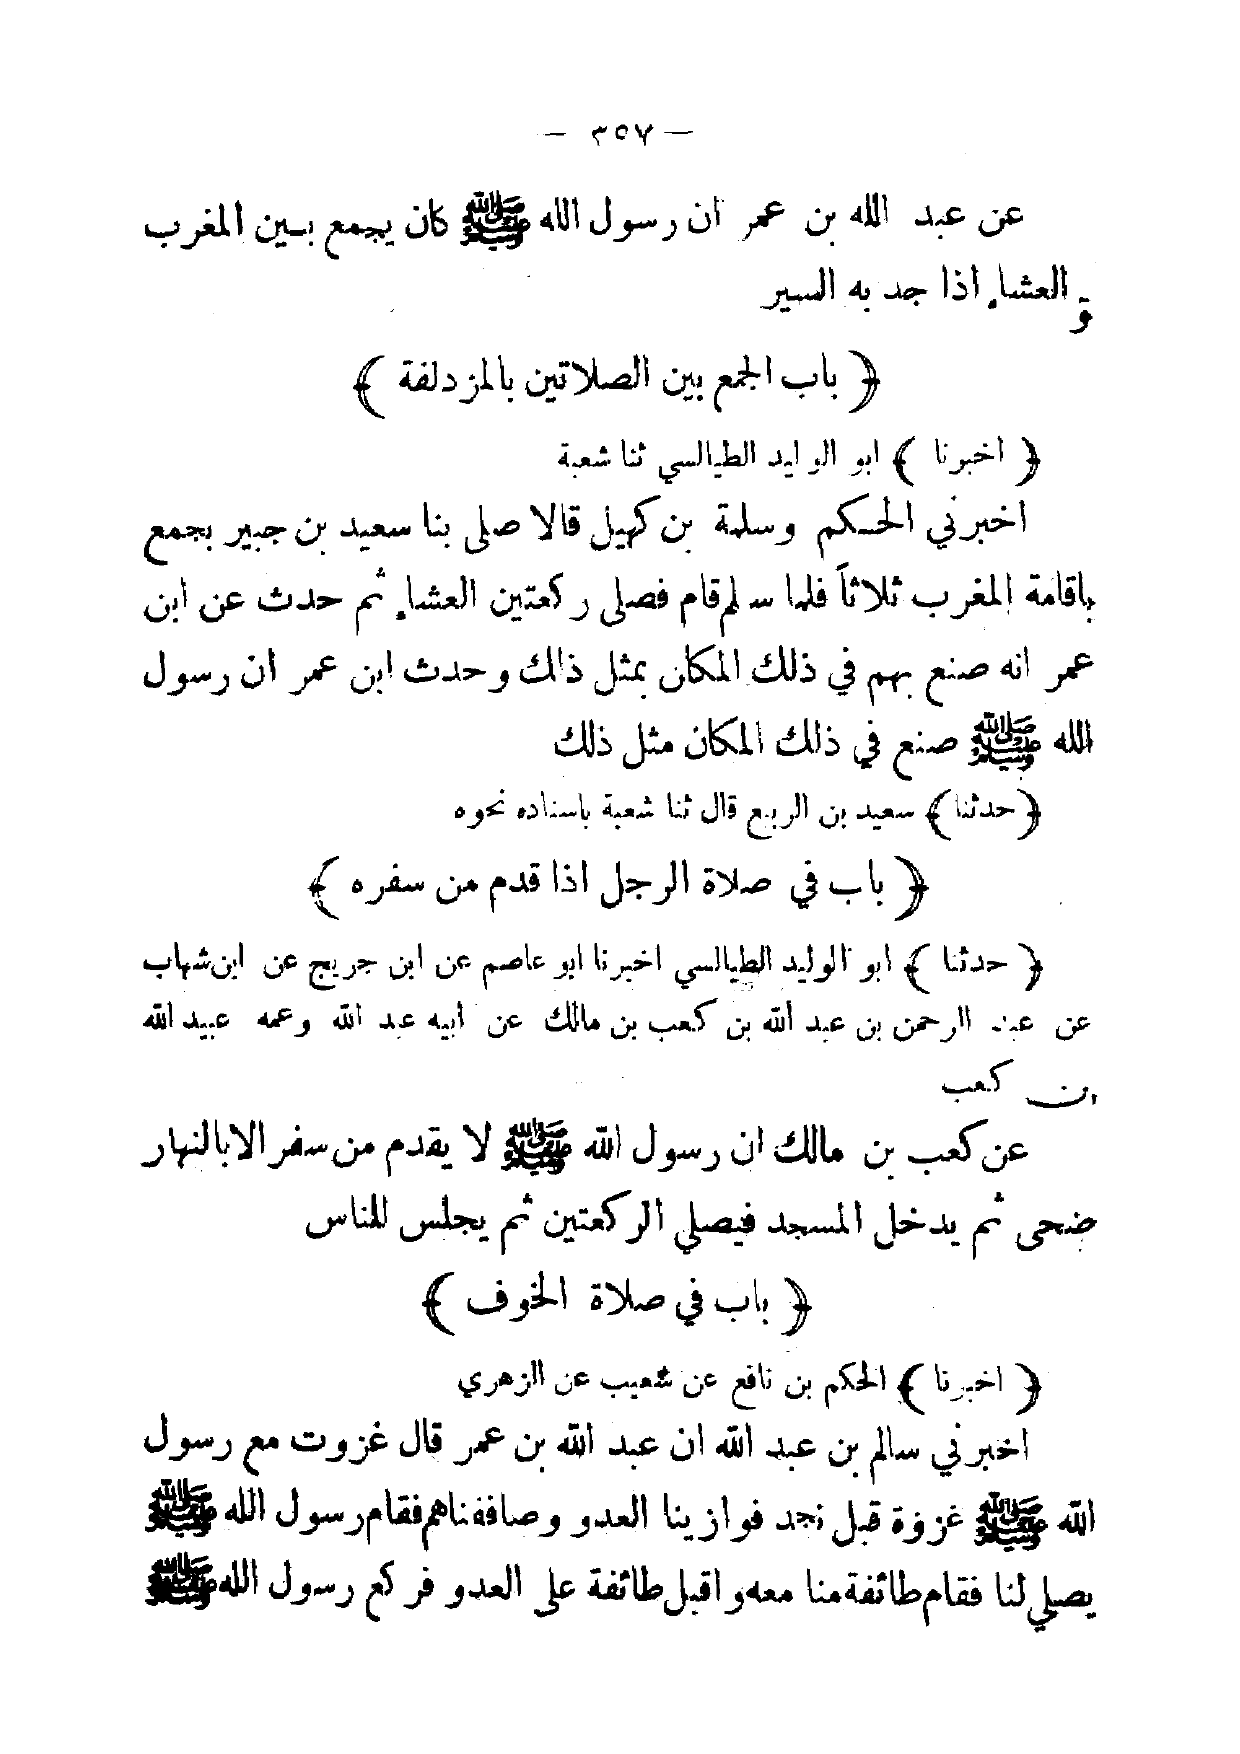 — ٣٥٧ —
عن عبد الله بن عمر ان رسول الله ﷺ كان يجمع بين المغرب
و العشاء اذا جد به السير
﴿ باب الجمع بين الصلاتين بالمزدلفة ﴾
﴿ اخبرنا ﴾ ابو الوليد الطيالسي ثنا شعبة
اخبرني الحكم وسلمة بن كهيل قالا صلى بنا سعيد بن جبير بجمع
باقامة المغرب ثلاثاً فلما سلم قام فصلى ركعتين العشاء ثم حدث عن ابن
عمر انه صنع بهم في ذلك المكان بمثل ذلك وحدث ابن عمر ان رسول
الله ﷺ صنع في ذلك المكان مثل ذلك
﴿حدثنا﴾ سعيد بن الربيع قال ثنا شعبة باسناده نحوه
﴿ باب في صلاة الرجل اذا قدم من سفره ﴾
﴿ حدثنا ﴾ ابو الوليد الطيالسي اخبرنا ابو عاصم عن ابن جريج عن ابن شهاب
عن عبد الرحمن بن عبد الله بن كعب بن مالك عن ابيه عبد الله وعمه عبيد الله
بن كعب
عن كعب بن مالك ان رسول الله ﷺ لا يقدم من سفر الا بالنهار
ضحى ثم يدخل المسجد فيصلي الركعتين ثم يجلس للناس
﴿ باب في صلاة الخوف ﴾
﴿ اخبرنا ﴾ الحكم بن نافع عن شعيب عن الزهري
اخبرني سالم بن عبد الله ان عبد الله بن عمر قال غزوت مع رسول
الله ﷺ غزوة قبل نجد فوازينا العدو وصاففناهم فقام رسول الله ﷺ
يصلي لنا فقام طائفة منا معه واقبل طائفة على العدو فركع رسول الله ﷺ